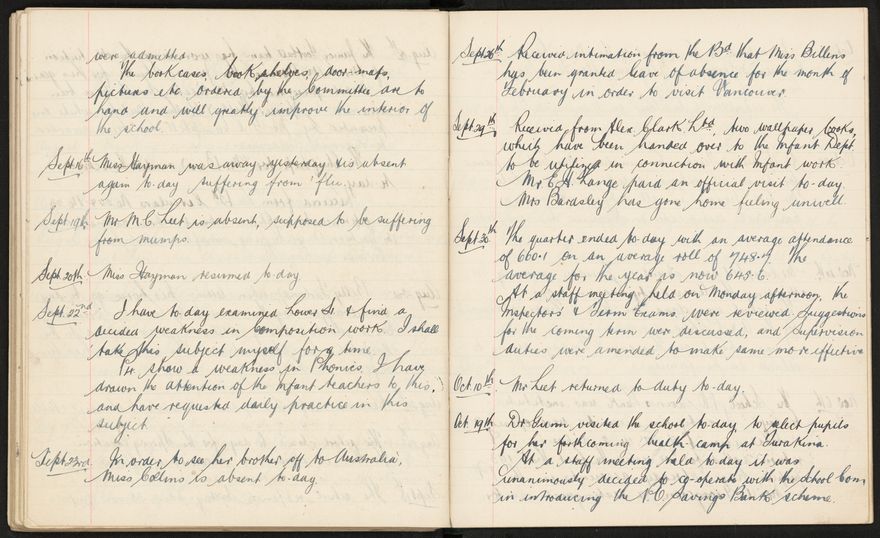 were admitted.
The bookcases, book shelves, door-mats,
pictures etc. ordered by the Committee are to
hand and will greatly improve the interior of
the school.
Sept. 16th Miss Hayman was away yesterday & is absent
again to-day suffering from 'flu.
Sept 19th Mr M. C. Leet is absent, supposed to be suffering
from mumps.
Sept. 20th Miss Hayman resumed to-day
Sept. 22nd I have to-day examined Lower & find a
decided weakness in composition work. I shall
take this subject myself for a time.
P4. show a weakness in Phonics. I have
drawn the attention of the Infant teachers to this,
and have requested daily practice in this
subject.
Sept. 23rd In order to see her brother off to Australia,
Miss Collins is absent to-day.
Sept 26th Received intimation from the Bd that Miss Billens
has been granted leave of absence for the month of
February in order to visit Vancouver.
Sept. 29th Received from Alex. Clark Ltd, two wallpaper books,
which have been handed over to the Infant Dept
to be utilized in connection with Infant work.
Mr. E. H. Lange paid an official visit to-day.
Mrs Bardsley has gone home feeling unwell.
Sept 30th The quarter ended to-day with an average attendance
of 660.1 on an average roll of 748.7. The
average for the year is now 645.6.
At a staff meeting held on Monday afternoon, the
Inspectors' & Term Exams were reviewed. Suggestions
for the coming term were discussed, and supervision
duties were amended to make same more effective
Oct. 10th Mr Leet returned to duty to-day.
Oct. 19th Dr Gunn visited the school to-day to select pupils
for her forthcoming health camp at Turakina.
At a staff meeting held to-day it was
unanimously decided to co-operate with the School Com
in introducing the P.O Savings Bank scheme.